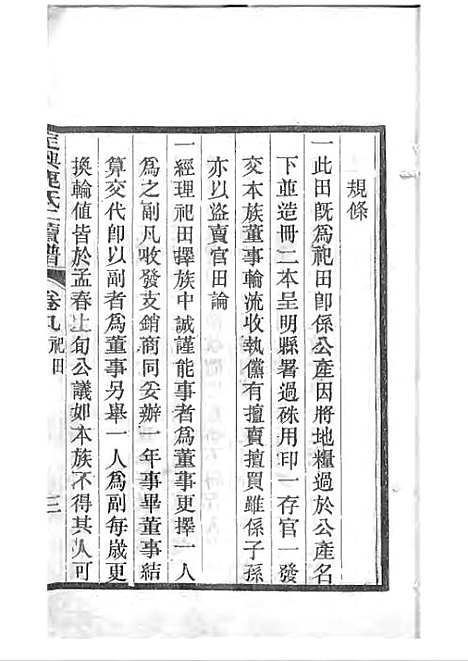 規條
一此田既爲祀田卽係公產因將地糧過於公產名
下並造冊二本呈明縣署過硃用印一存官一發
交本族董事輪流收執儻有擅賣擅買雖係子孫
亦以盜賣官田論
一經理祀田擇族中誠謹能事者爲董事更擇一人
爲之副凡收發支銷商同妥辦一年事畢董事結
算交代卽以副者爲董事另舉一人爲副每歲更
換輪値皆於孟春上旬公議如本族不得其人可
定興鹿氏二續譜 卷九 祀田 三